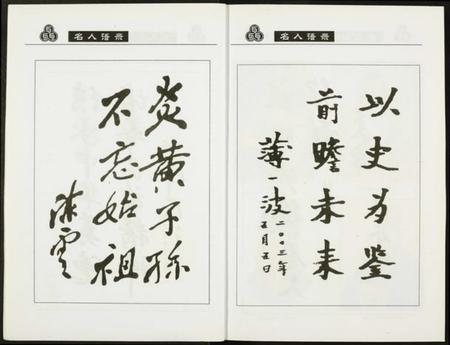 名人语录
炎黄子孙
不忘始祖
陈云
名人语录
以史为鉴
前瞻未来
薄一波 二〇〇三年
五月五日